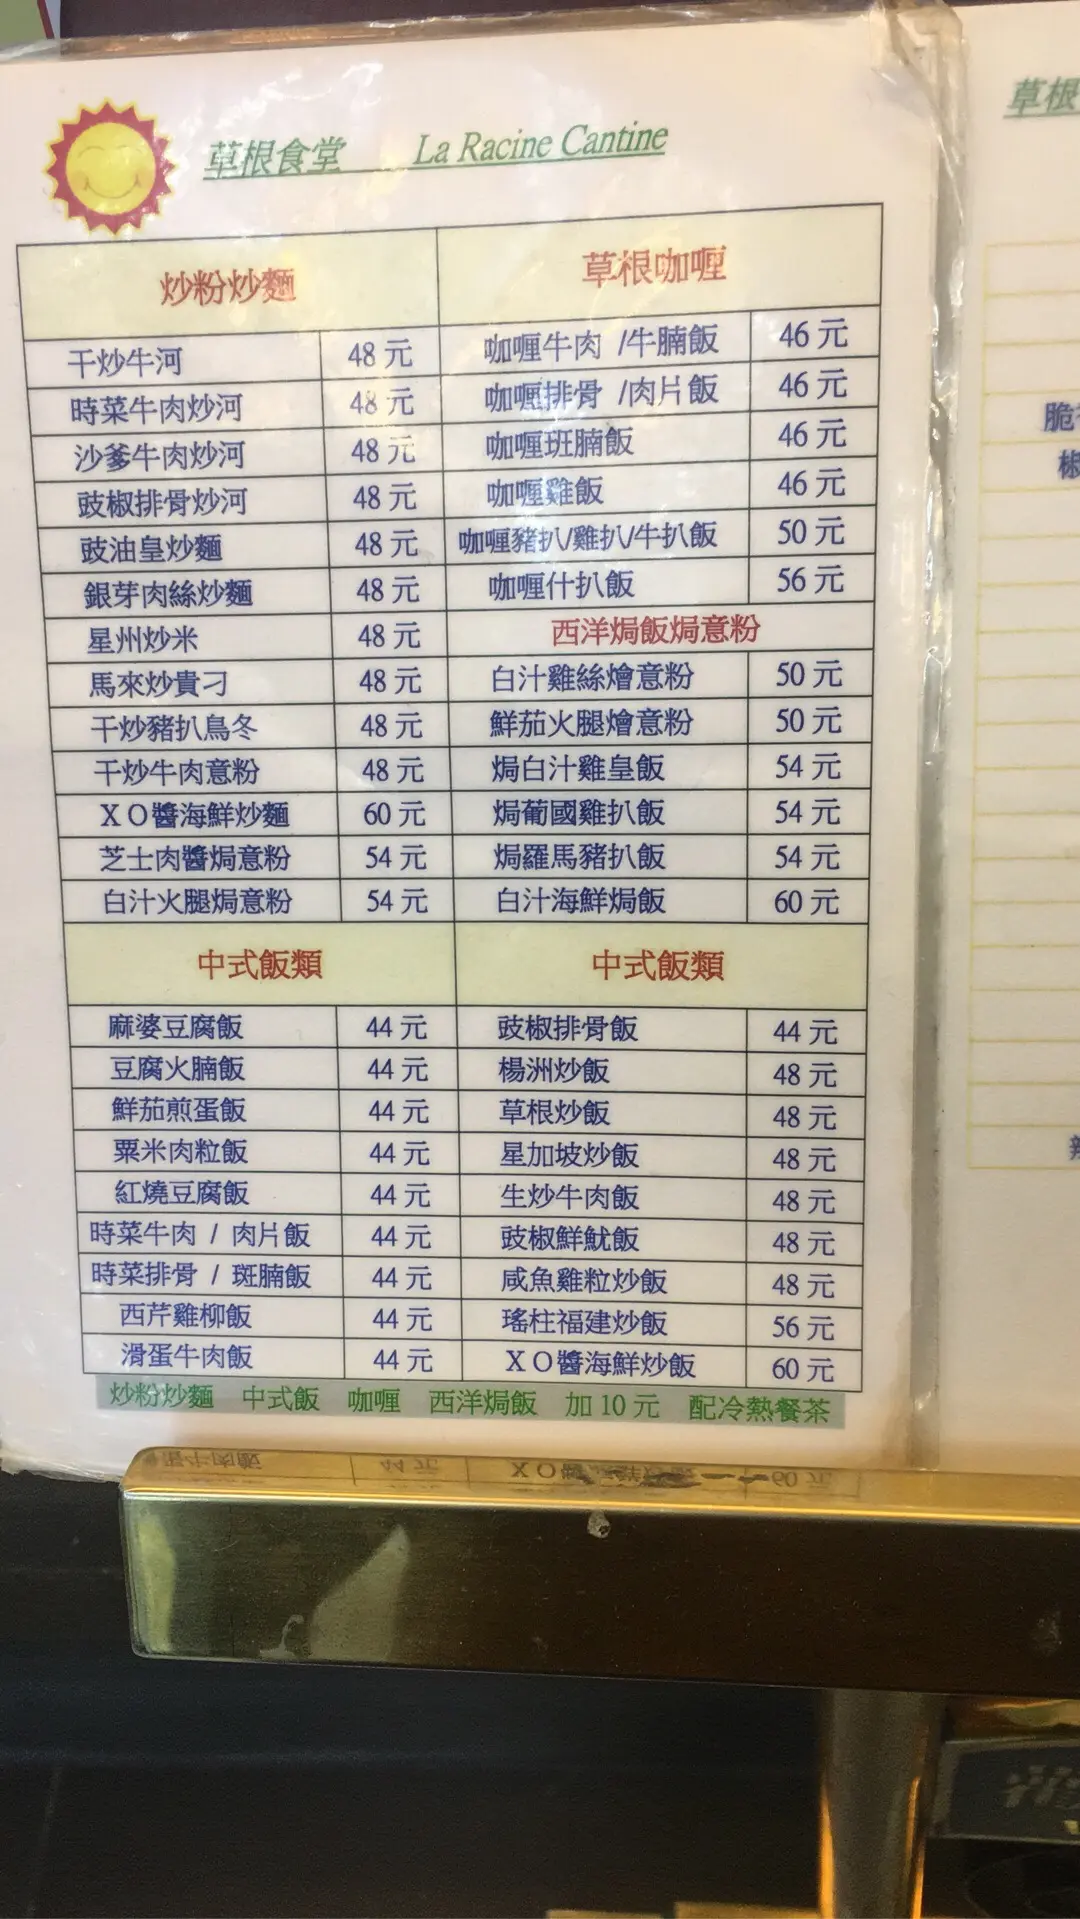 草根食堂 La Racine Cantine
草根
炒粉炒麵 草根咖喱
干炒牛河 48 元 咖喱牛肉 /牛腩飯 46 元
時菜牛肉炒河 48 元 咖喱排骨 /肉片飯 46 元
沙爹牛肉炒河 48 元 咖喱班腩飯 46 元
豉椒排骨炒河 48 元 咖喱雞飯 46 元
豉油皇炒麵 48 元 咖喱豬扒/雞扒/牛扒飯 50 元
銀芽肉絲炒麵 48 元 咖喱什扒飯 56 元
星州炒米 48 元 西洋焗飯焗意粉
馬來炒貴刁 48 元 白汁雞絲燴意粉 50 元
干炒豬扒烏冬 48 元 鮮茄火腿燴意粉 50 元
干炒牛肉意粉 48 元 焗白汁雞皇飯 54 元
ＸＯ醬海鮮炒麵 60 元 焗葡國雞扒飯 54 元
芝士肉醬焗意粉 54 元 焗羅馬豬扒飯 54 元
白汁火腿焗意粉 54 元 白汁海鮮焗飯 60 元
中式飯類 中式飯類
麻婆豆腐飯 44 元 豉椒排骨飯 44 元
豆腐火腩飯 44 元 楊洲炒飯 48 元
鮮茄煎蛋飯 44 元 草根炒飯 48 元
粟米肉粒飯 44 元 星加坡炒飯 48 元
紅燒豆腐飯 44 元 生炒牛肉飯 48 元
時菜牛肉 / 肉片飯 44 元 豉椒鮮魷飯 48 元
時菜排骨 / 斑腩飯 44 元 咸魚雞粒炒飯 48 元
西芹雞柳飯 44 元 瑤柱福建炒飯 56 元
滑蛋牛肉飯 44 元 ＸＯ醬海鮮炒飯 60 元
炒粉炒麵 中式飯 咖喱 西洋焗飯 加 10 元 配冷熱餐茶